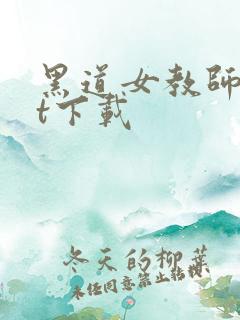 黑道女教師
t下載
冬天的柳葉
未经同意禁止转载